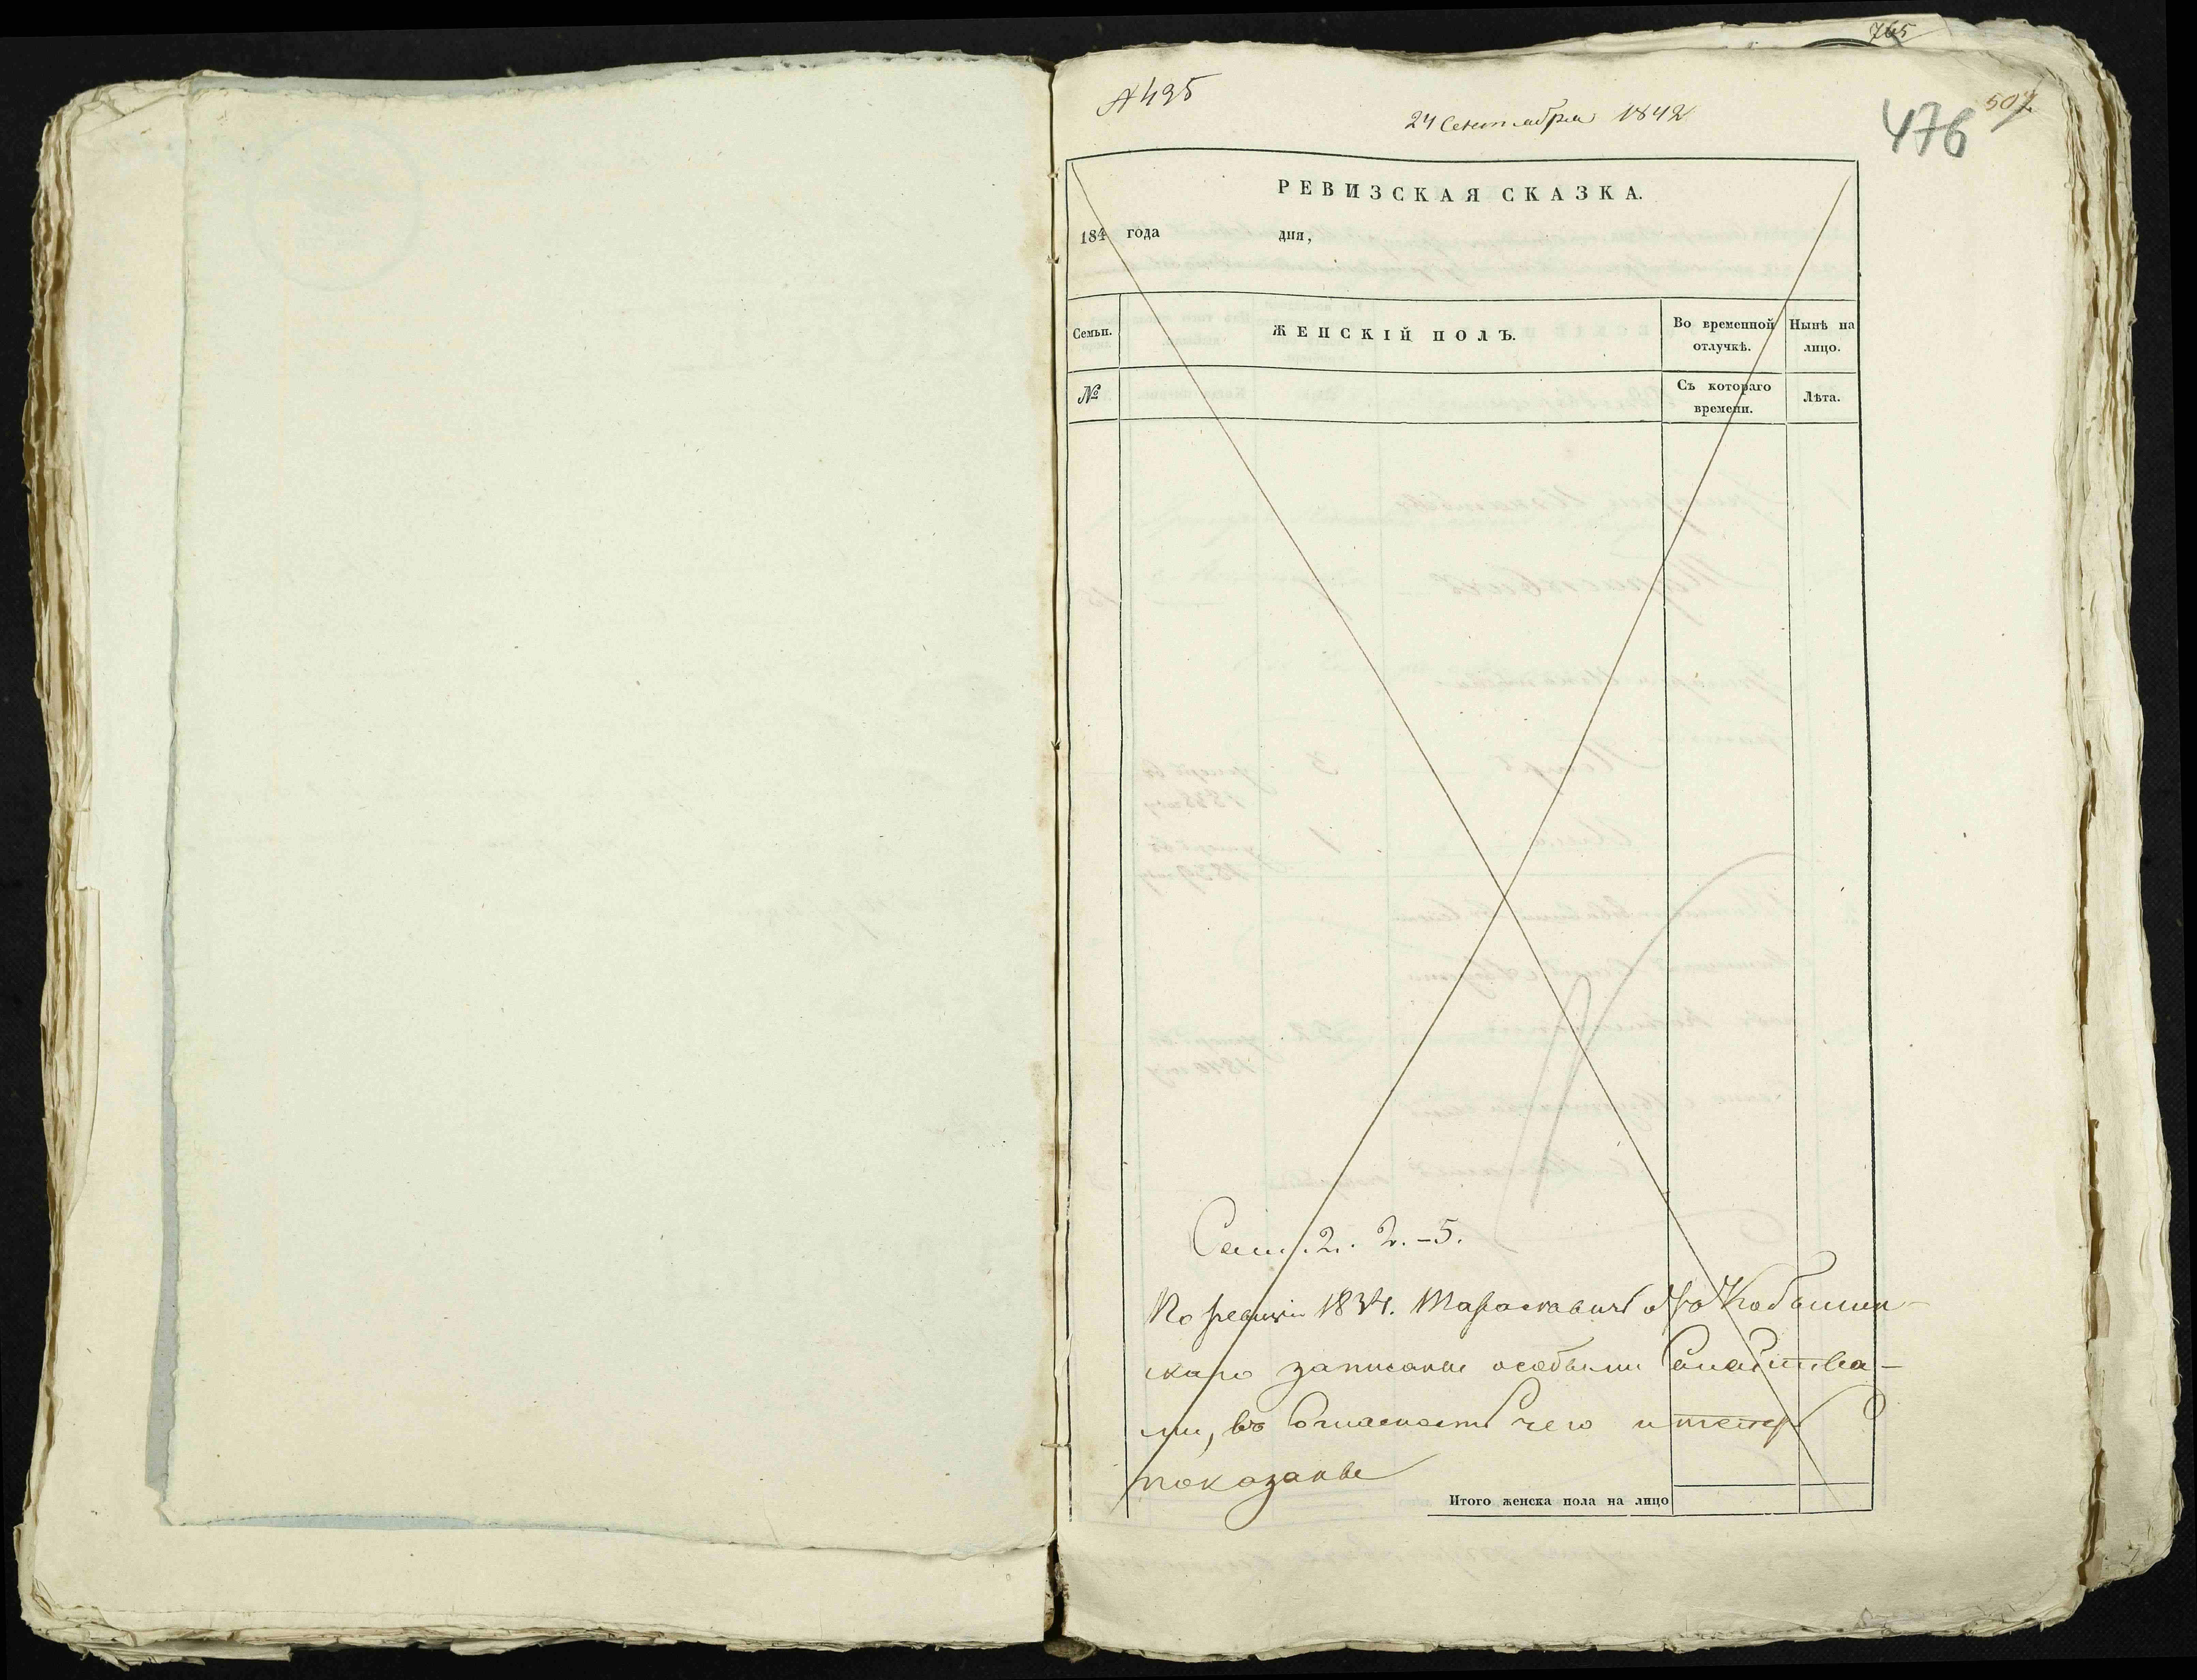 765
№ 495
24 Сентября 1842
507
476
РЕВИЗСКАЯ СКАЗКА.
184 года дня,
Семьи.
ЖЕНСКІЙ ПОЛЪ.
Во временной отлучкѣ.
Нынѣ на лицо.
№
Съ котораго времени.
Лѣта.
Сем. 2. 2. – 5.
По ревизіи 1834. Тараскавич
скаго записаны особыми Семейства-
ми, въ чего и теперь
показаны
Итого женска пола на лицо